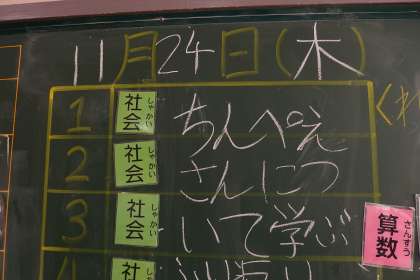 11月24日(木)
1 社会 しゃかい ちんぺえ
2 社会 しゃかい さんにつ
3 社会 しゃかい いて学ぶ
算数 さんすう
社会